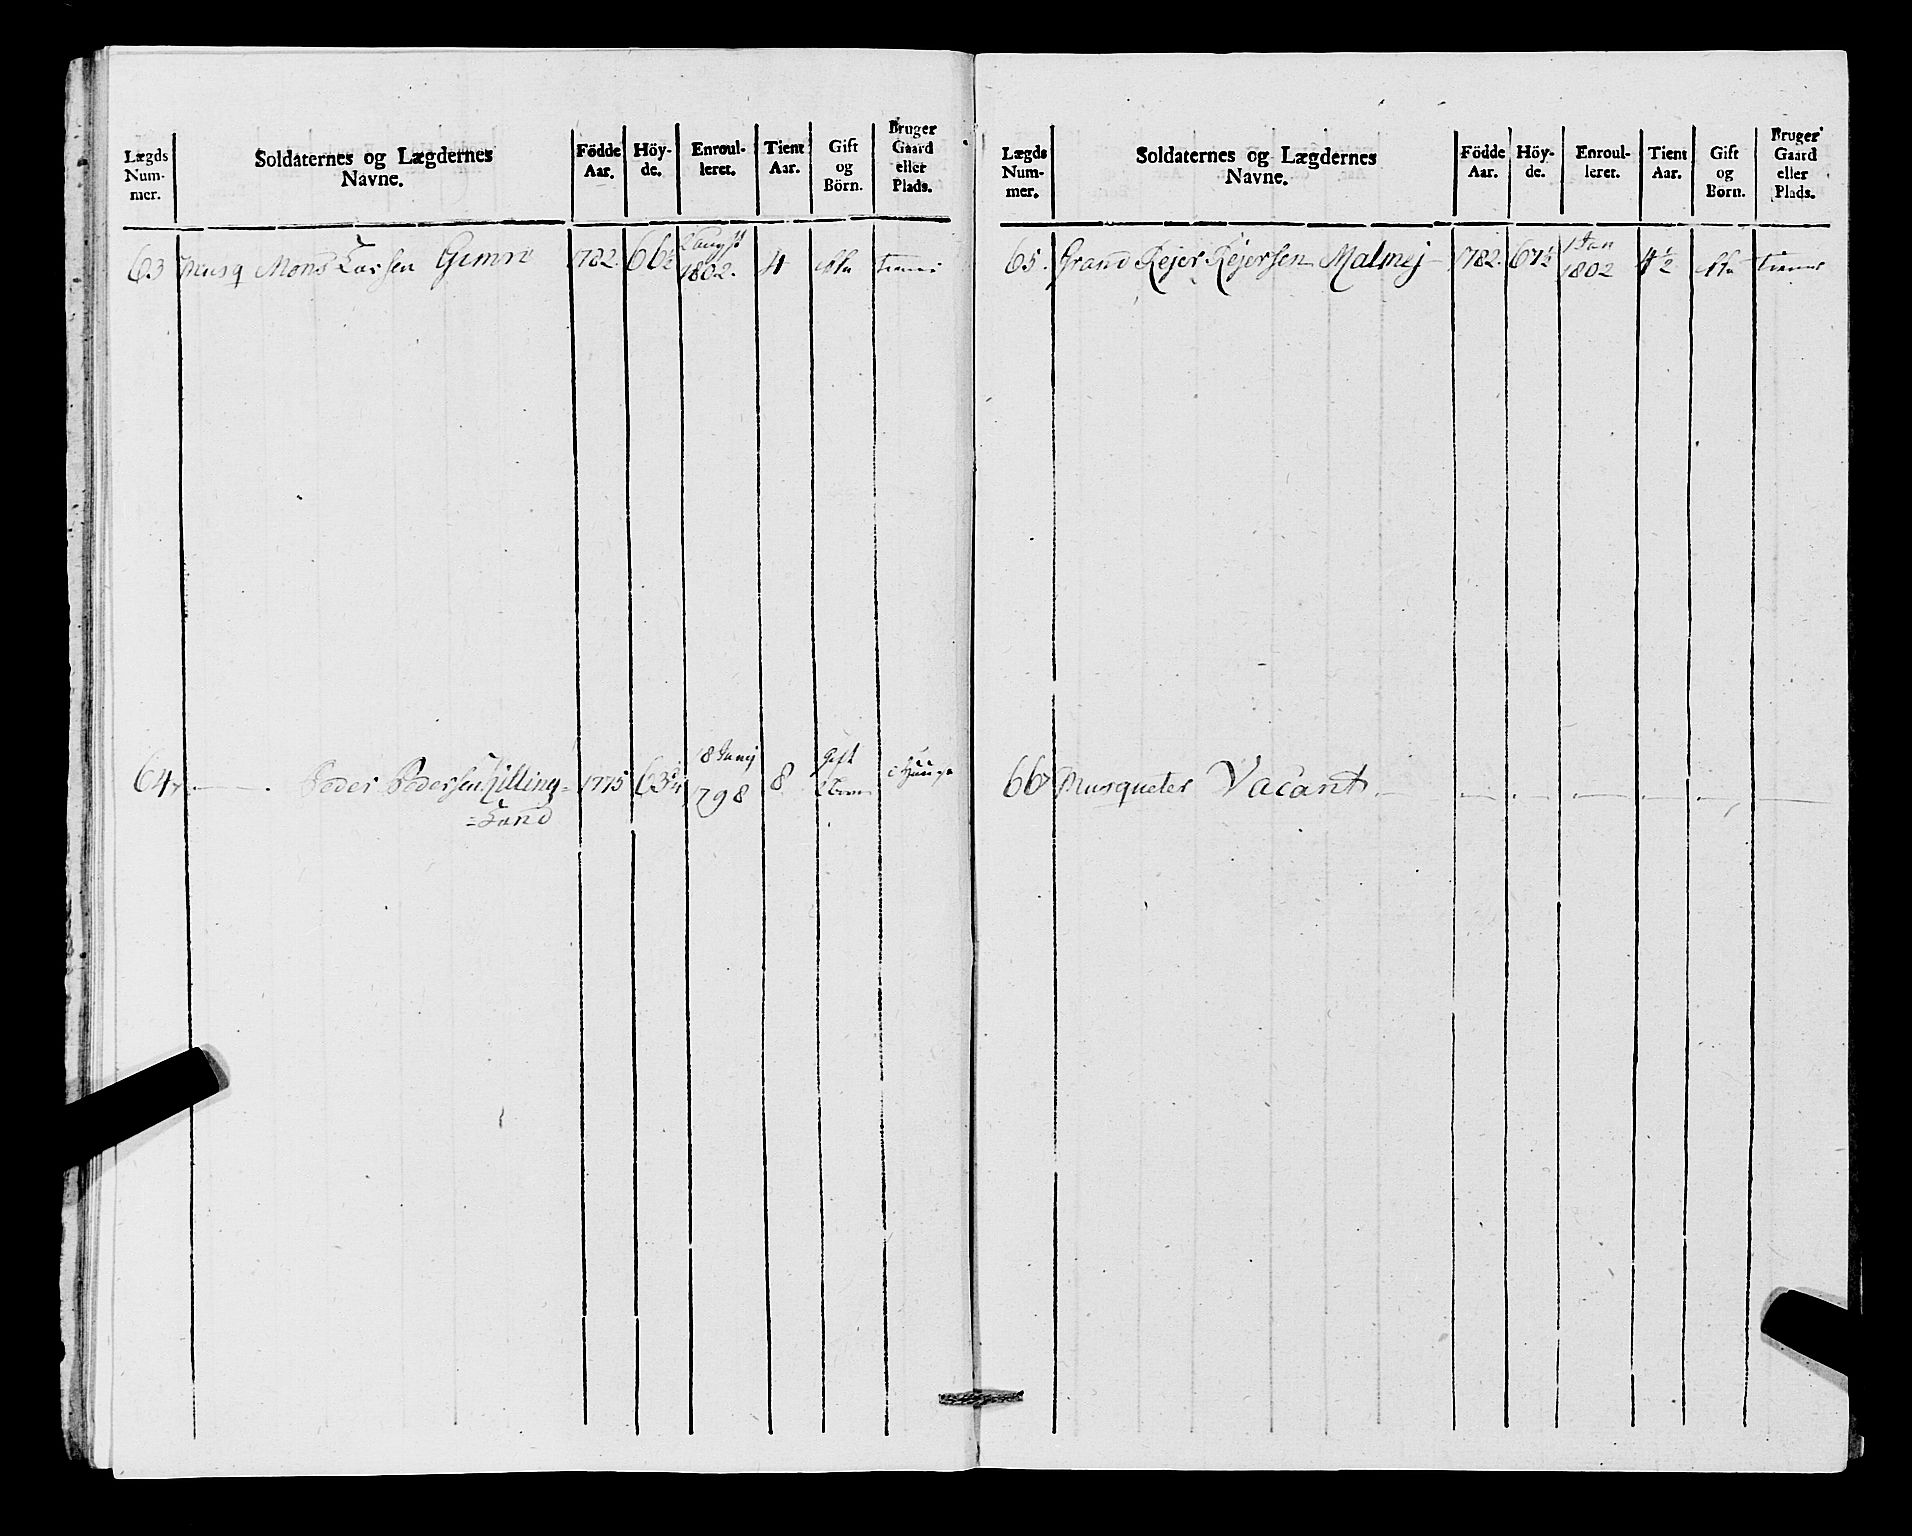 Lægds Num-mer.
Soldaternes og Lægdernes Navne.
Födde Aar.
Höy-de.
Enroul-leret.
Tient Aar.
Gift og Börn.
Bruger Gaard eller Plads.
63 Musq Mons Larsen Gimre 1782. 66½ 1802. 4
64 Peder Pedersen Killing=
=Land 1775 8 Junij 1798 8 Gift
Lægds Num-mer.
Soldaternes og Lægdernes Navne.
Födde Aar.
Höy-de.
Enroul-leret.
Tient Aar.
Gift og Børn.
Bruger Gaard eller Plads.
65. Grand Rejer Rejersen Malmej 1782. 67½ 1 Jan 1802 4½
66 Musqueter Vacant